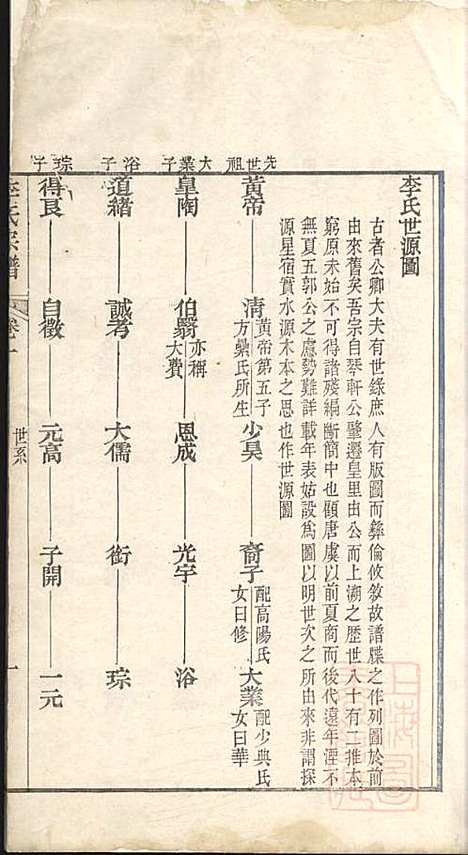 李氏世源圖
古者公卿大夫有世錄庶人有版圖而彝倫攸敘故譜牒之作列圖於前
由來舊矣吾宗自琴軒公肇遷皇里由公而上溯之歷世八十有二推本
窮原未始不可得諸殘編斷簡中也顧唐虞以前夏商而後代遠年湮不
無夏五郭公之慮勢難詳載年表姑設為圖以明世次之所由來非謂探
源星宿實水源木本之思也作世源圖
先世祖
黃帝 清 黃帝第五子方纍氏所生 少昊 裔子 配高陽氏女曰修 大業 配少典氏女曰華
大業子
皇陶 伯翳 亦稱大費 恩成 光宇 浴
浴子
道緒 誠考 大儒 銜 琮
琮子
得艮 自徵 元高 子開 一元
李氏宗譜 卷一 世系 一